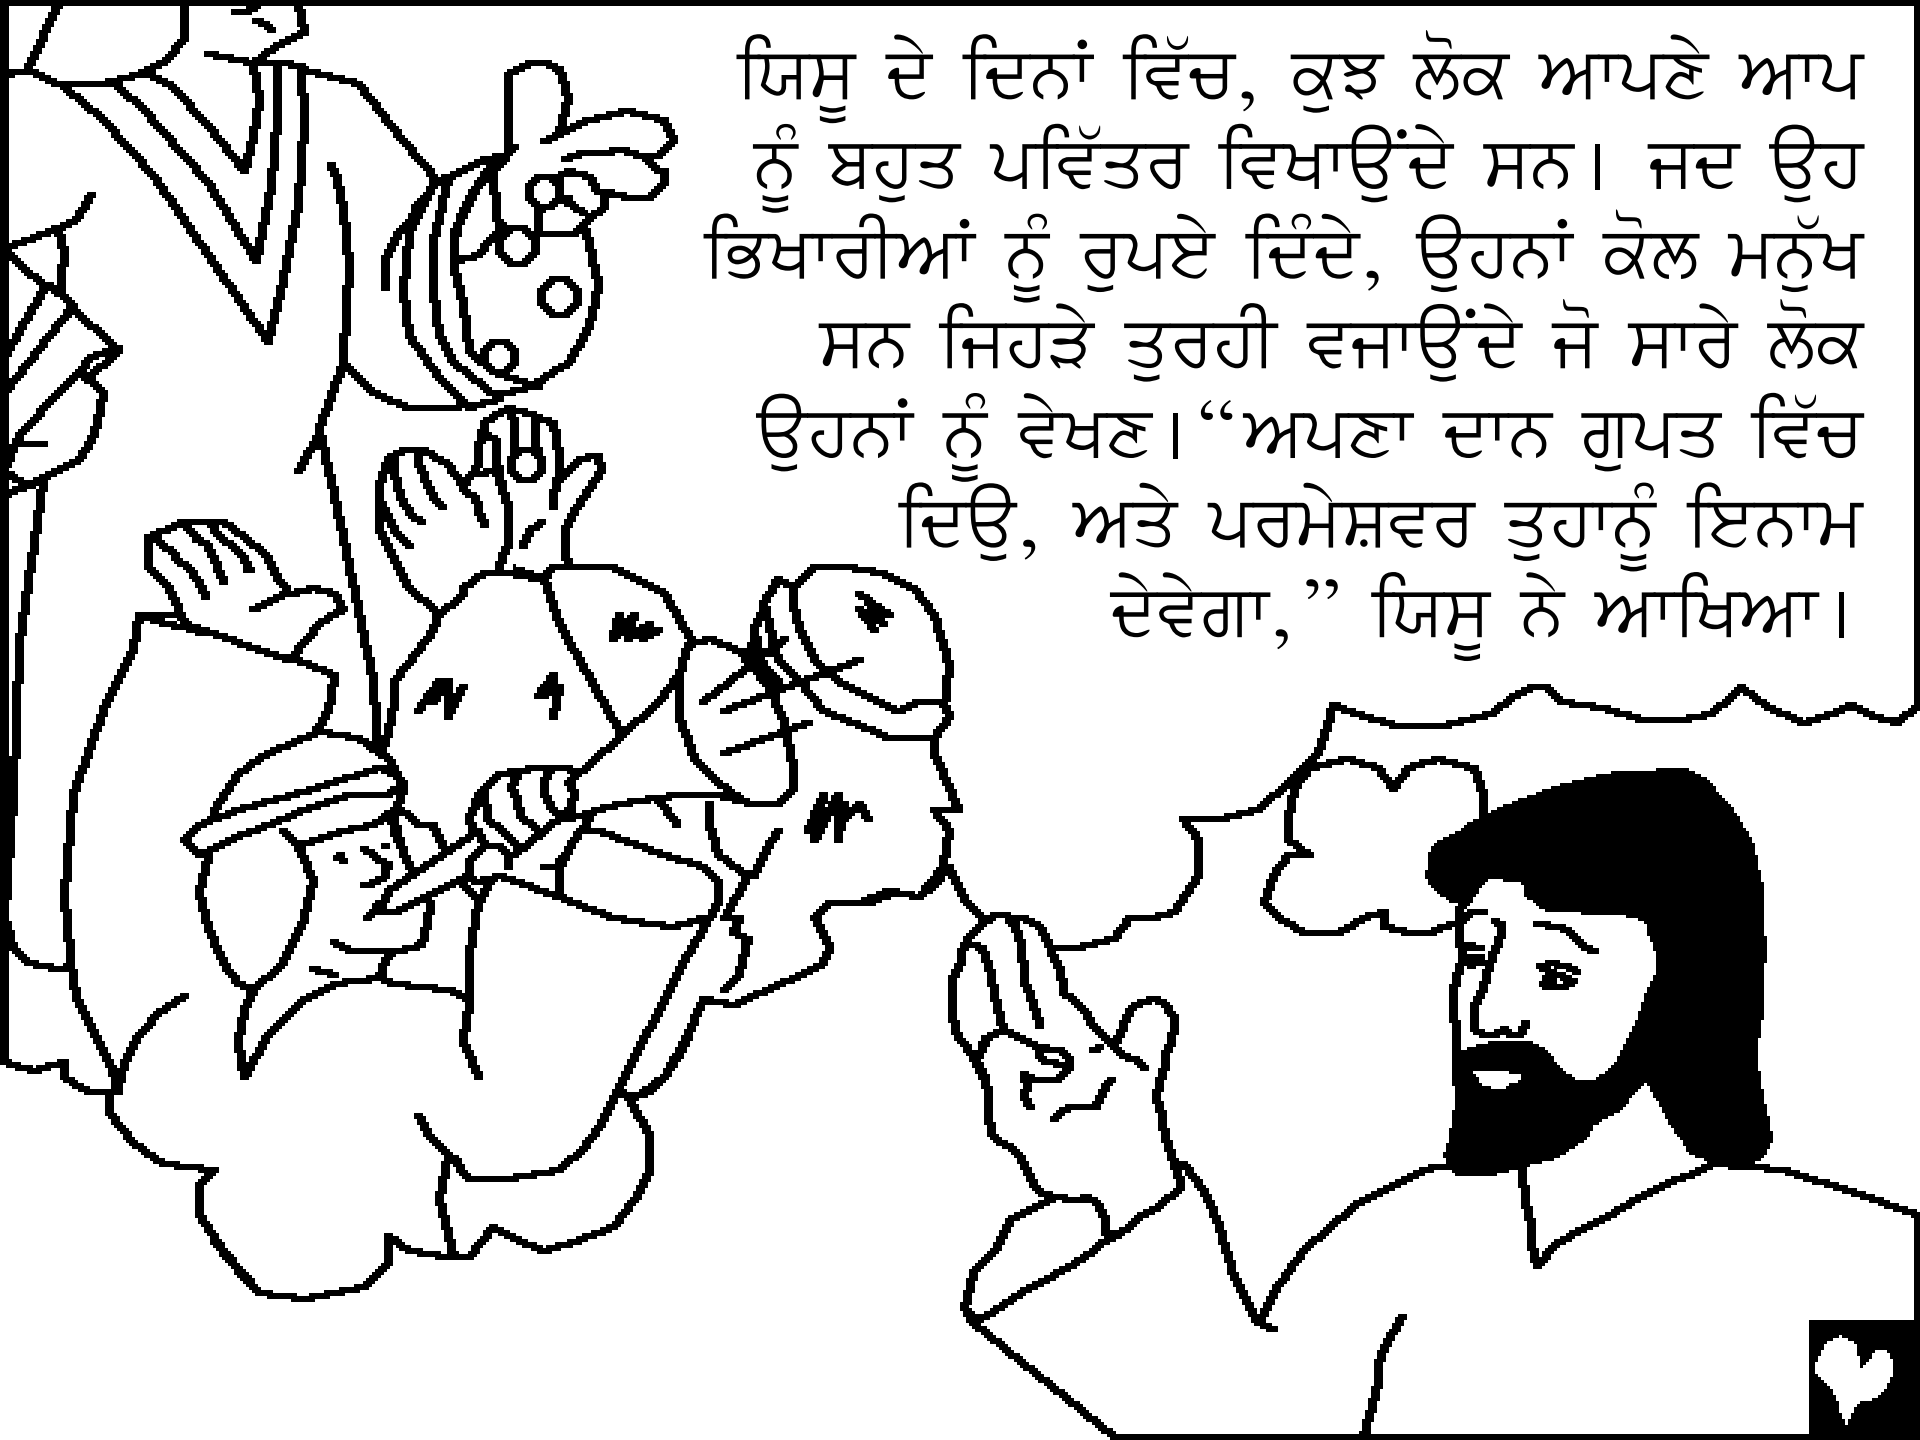 ਯਿਸੂ ਦੇ ਦਿਨਾਂ ਵਿੱਚ, ਕੁਝ ਲੋਕ ਆਪਣੇ ਆਪ
ਨੂੰ ਬਹੁਤ ਪਵਿੱਤਰ ਵਿਖਾਉਂਦੇ ਸਨ। ਜਦ ਉਹ
ਭਿਖਾਰੀਆਂ ਨੂੰ ਰੁਪਏ ਦਿੰਦੇ, ਉਹਨਾਂ ਕੋਲ ਮਨੁੱਖ
ਸਨ ਜਿਹੜੇ ਤੁਰਹੀ ਵਜਾਉਂਦੇ ਜੋ ਸਾਰੇ ਲੋਕ
ਉਹਨਾਂ ਨੂੰ ਵੇਖਣ। “ਅਪਣਾ ਦਾਨ ਗੁਪਤ ਵਿੱਚ
ਦਿਉ, ਅਤੇ ਪਰਮੇਸ਼ਵਰ ਤੁਹਾਨੂੰ ਇਨਾਮ
ਦੇਵੇਗਾ,” ਯਿਸੂ ਨੇ ਆਖਿਆ।